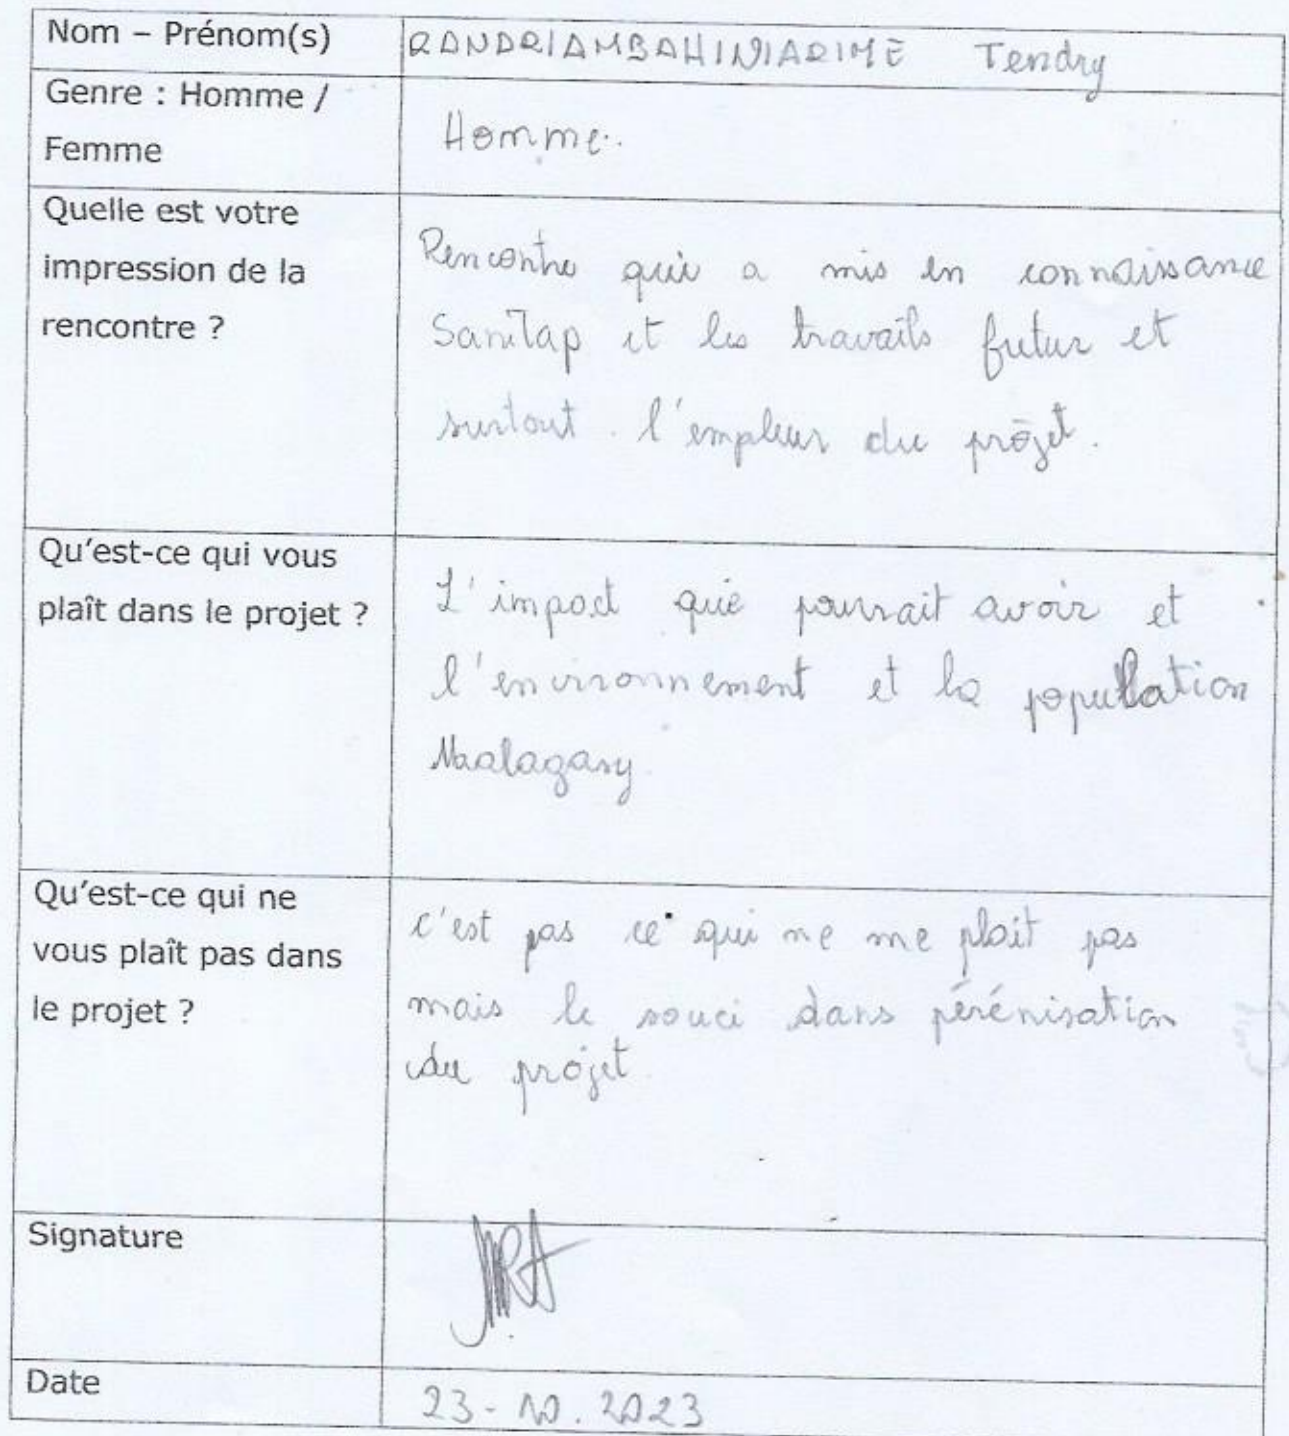 Nom – Prénom(s)
RANDRIAMBAHINIARIME Tendry
Genre : Homme /
Femme
Homme.
Quelle est votre
impression de la
rencontre ?
Rencontre qui a mis en connaissance
Sanitap et les travails futur et
surtout l'empleur du projet.
Qu'est-ce qui vous
plaît dans le projet ?
L'impact que pourrait avoir et
l'environnement et la population
Malagasy
Qu'est-ce qui ne
vous plaît pas dans
le projet ?
c'est pas ce qui ne me plait pas
mais le souci dans pérénisation
du projet.
Signature
Date
23-10.2023